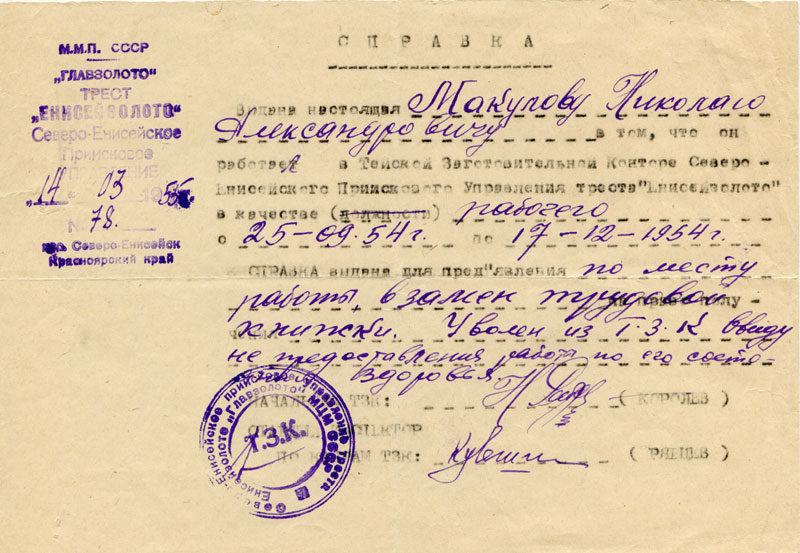 М.М.П. СССР
„ГЛАВЗОЛОТО“
ТРЕСТ
„ЕНИСЕЙЗОЛОТО“
Северо-Енисейское
Приисковое
УПРАВЛЕНИЕ
„14“ 03 1955г.
№ 78.
Северо-Енисейск
Красноярский край
СПРАВКА
Выдана настоящая Макулову Николаю
Александровичу в том, что он
работает в Тейской Заготовительной Конторе Северо-
Енисейского Приискового Управления треста"Енисейзолото"
в качестве (должности) рабочего
с 25-09.54г. по 17-12-1954г.
СПРАВКА выдана для пред"явления по месту
работы, взамен трудовой
книжки. Уволен из Т.З.К ввиду
не предоставления работы по его состо-
здоровья
НАЧАЛЬ ТЗК: (КОРОЛЕВ)
СТ ИНСПЕКТОР
ПО КАДРАМ ТЗК: (РЯБЦЕВ)
Северо-Енисейское приисковое управление треста
Енисейзолото „Главзолото“ МЦМ СССР
Т.З.К.